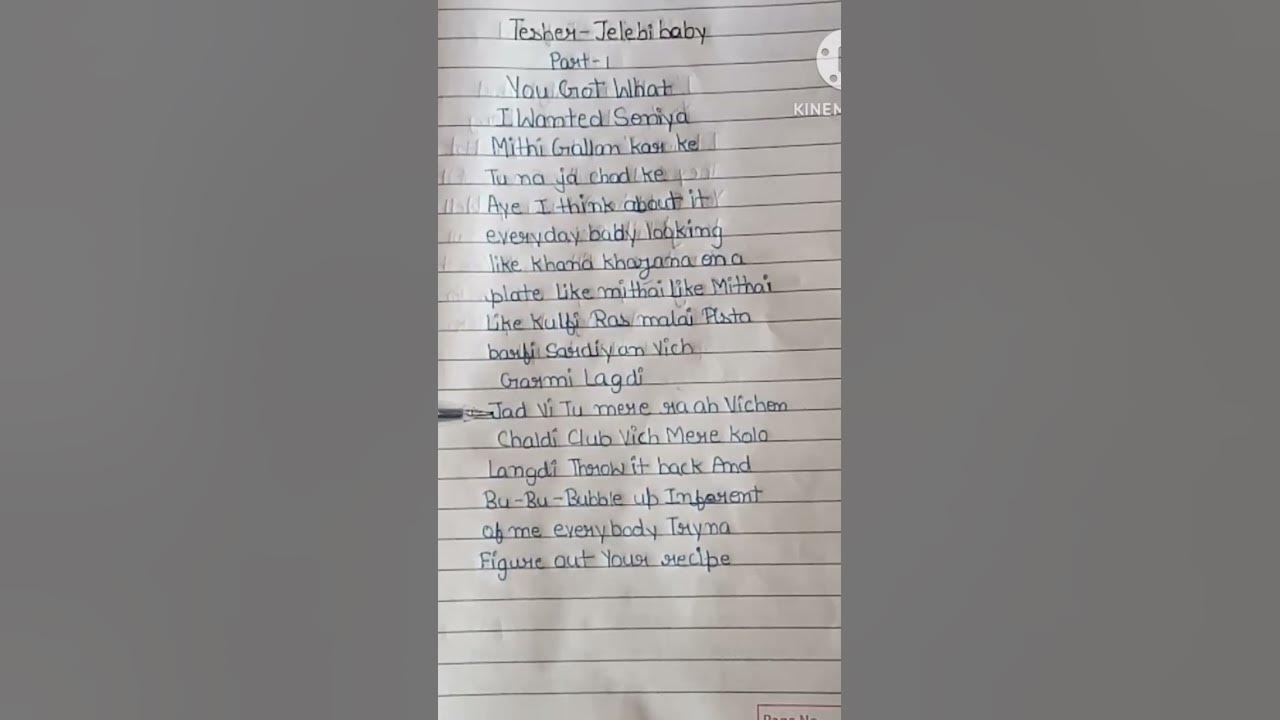 Tesher-Jelebi baby
Part-1
You Got What
I Wanted Soniya
Mithi Gallan kar ke
Tu na ja chad ke
Aye I think about it
everyday baby looking
like khana khazana on a
plate like mithai like Mithai
Like Kulfi Ras malai Pista
barfi Sardiyan Vich
Garmi Lagdi
Jad Vi Tu mere raah Vichon
Chaldi Club Vich Mere Kolo
Langdi Throw it back And
Bu-Bu-Bubble up Inforent
of me everybody Tryna
Figure out Your recipe
KINEM
Page No